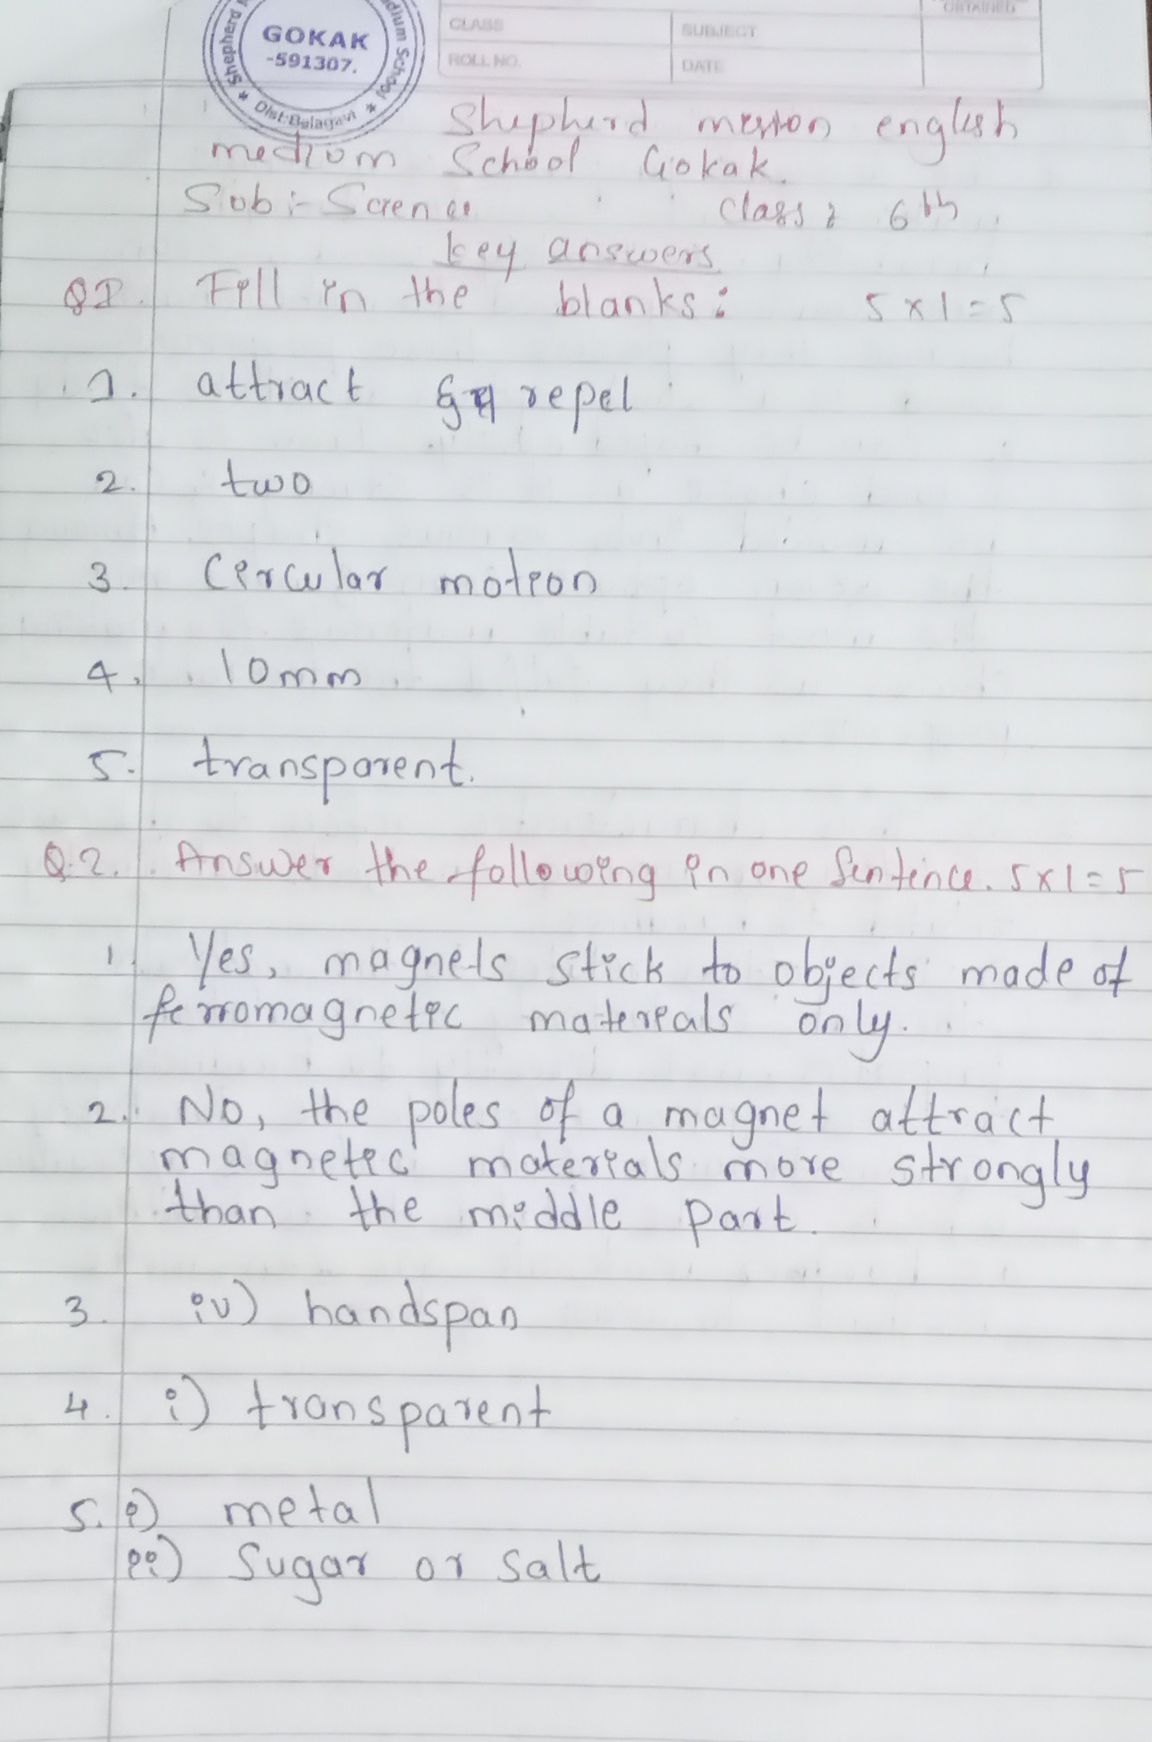 GOKAK
-591307.
Shepherd
dium School
Dist:Belagavi
OBTAINED
CLASS
SUBJECT
ROLL NO.
DATE
Shepherd mission english
medium School Gokak.
Sub:- Science Class: 6th
key answers
Q1. Fill in the blanks: 5x1=5
1. attract & repel
2. two
3. Circular motion
4. 10mm.
5. transparent.
Q.2. Answer the following in one Sentence. 5x1=5
1. Yes, magnets stick to objects made of
ferromagnetic materials only.
2. No, the poles of a magnet attract
magnetic materials more strongly
than the middle part.
3. iv) handspan
4. i) transparent
5. i) metal
ii) Sugar or salt